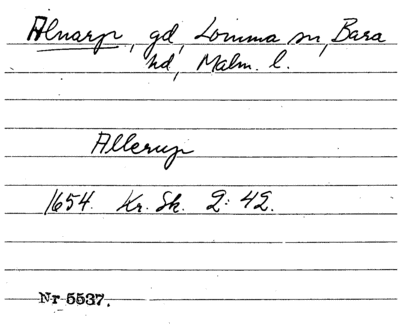 Alnarp, gd, Lomma sn, Bara
hd, Malm. l.
Allerup
1654. Kr. Sk. 2: 42.
Nr 5537.